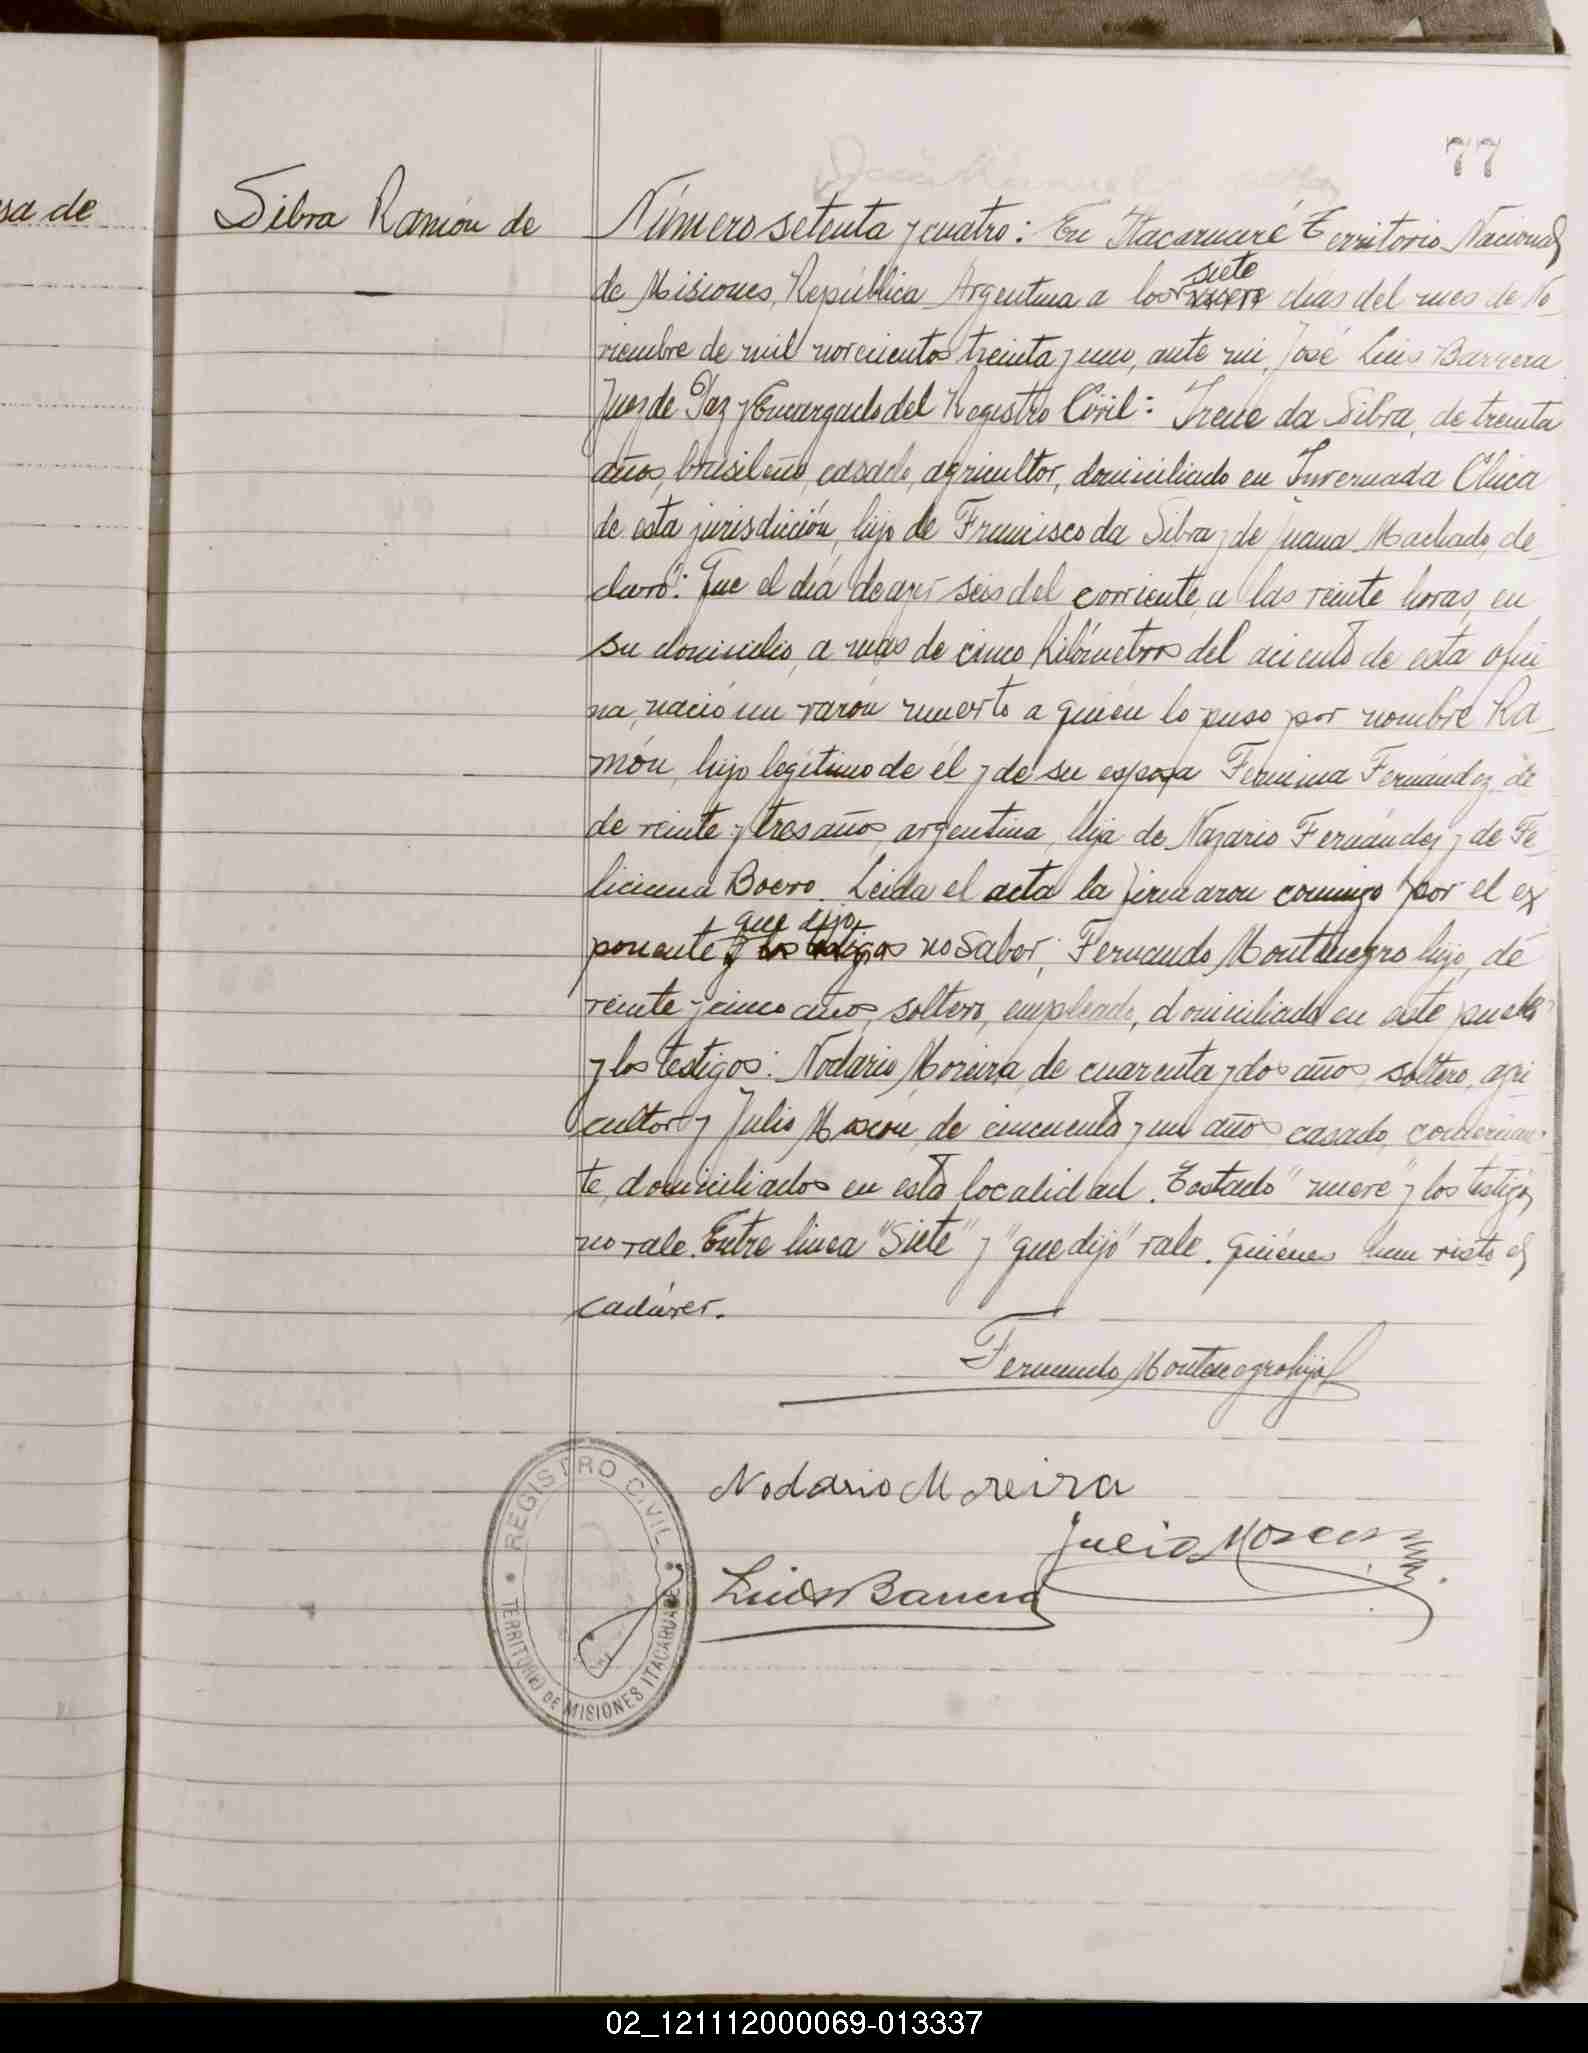 sa de
77
Silva Ramón de
Número setenta y cuatro: En Itacaruaré Territorio Nacional
de Misiones, República Argentina a los siete días del mes de No-
viembre de mil novecientos treinta y uno, ante mi, José Luis Barrera
Juez de Paz y Encargado del Registro Civil: Irene da Silva, de treinta
años, brasileño, casado, agricultor, domiciliado en Invernada Chica
de esta jurisdicción, hijo de Francisco da Silva y de Juana Machado, de-
claró: Que el día de ayer seis del corriente, a las veinte horas, en
su domicilio, a mas de cinco kilómetros del aciento de esta ofici
na, nació un varón muerto a quién lo puso por nombre Ra-
món, hijo legítimo de él y de su esposa Fermina Fernández, de
de veinte y tres años, argentina, hija de Nazario Fernández y de Fe-
liciana Boero. Leida el acta la firmaron conmigo por el ex
ponente que dijo no saber; Fernando Montenegro hijo, de
veinte y cinco años, soltero, empleado, domiciliado en este pueblo
y los testigos: Nodario Moreira, de cuarenta y dos años, soltero, agri
cultor y Julio Moscon, de cincuenta y un años, casado, comercian-
te, domiciliados en esta localidad. Testado "nueve" y los testigos
no vale. Entre linea "Siete" y "que dijo" vale. Quiénes han visto el
cadáver.
Fernando Montenegro hijo
Nodario Moreira
Julio Moscon
Luis Barrera
REGISTRO CIVIL
TERRITORIO DE MISIONES ITACARUARE
02_121112000069-013337